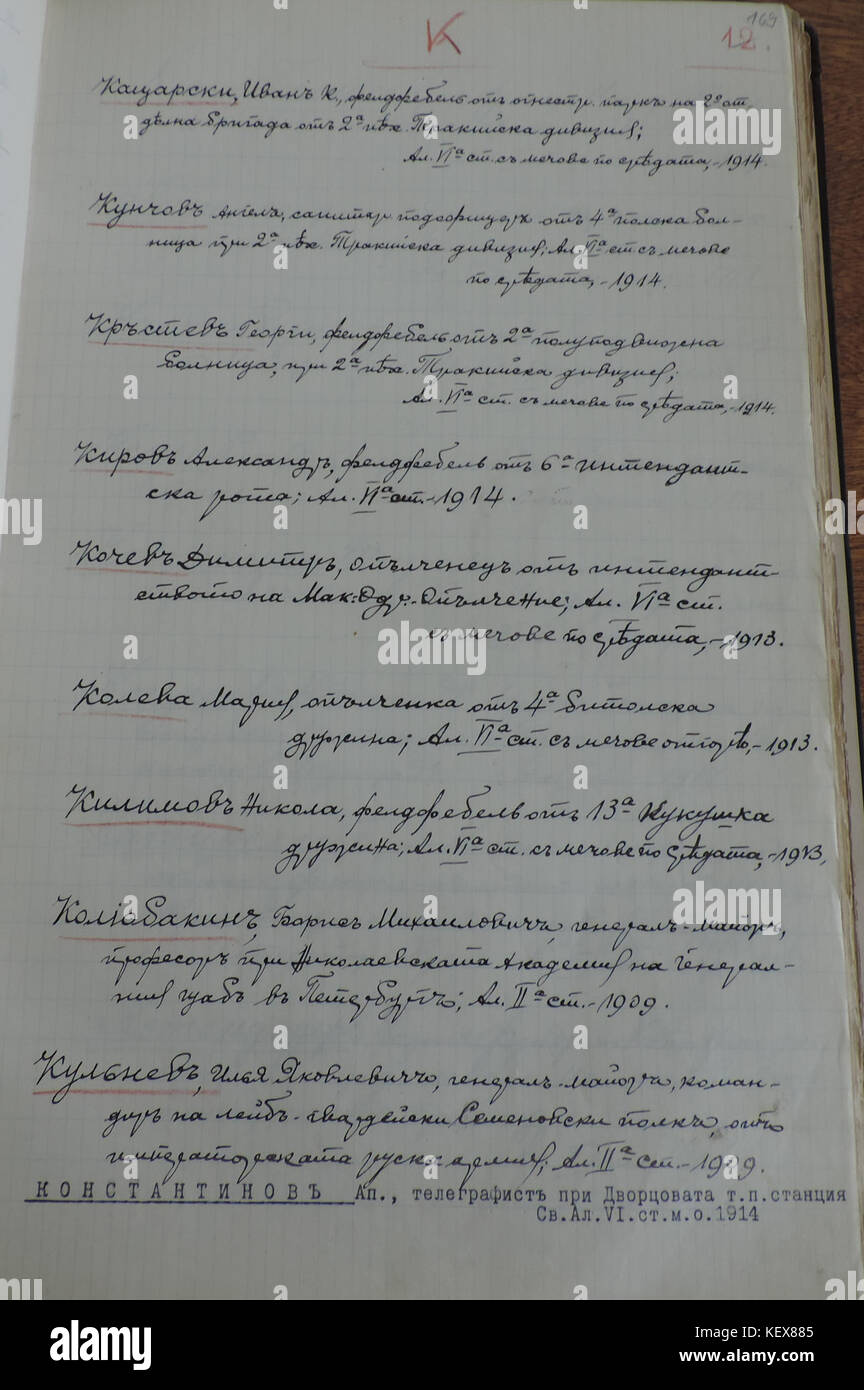 169
К 12.
Кацарски, Иванъ К., фелдфебелъ отъ огнестр. паркъ на 2а от
дѣлна бригада отъ 2а пѣх. Тракийска дивизия;
Ал. VIа ст. съ мечове по срѣдата, -1914.
Кунчовъ Ангелъ, санитар. подофицеръ отъ 4а полска бол-
ница при 2а пѣх. Тракийска дивизия; Ал. VIа ст. съ мечове
по срѣдата, -1914.
Кръстевъ Георги, фелдфебелъ отъ 2а полуподвижна
болница, при 2а пѣх. Тракийска дивизия;
Ал. VIа ст. съ мечове по срѣдата, -1914.
Кировъ Александъръ, фелдфебелъ отъ 6а интендант-
ска рота; Ал. VIа ст. -1914.
Кочевъ Димитъръ, опълченецъ отъ интендант-
ството на Мак: Одр. Опълчение; Ал. VIа ст.
съ мечове по срѣдата, -1913.
Колева Мария, опълченка отъ 4а битолска
дружина; Ал. VIа ст. съ мечове отгорѣ, -1913.
Килимовъ Никола, фелдфебелъ отъ 13а Кукушка
дружина; Ал. VIа ст. съ мечове по срѣдата, -1913,
Колюбакинъ, Борисъ Михаиловичъ, генералъ-майоръ,
професоръ при Николаевската Академия на Генерал-
ния щабъ въ Петербургъ; Ал. IIа ст. -1909.
Кульневъ, Илья Яковлевичъ, генералъ-майоръ, коман-
диръ на лейбъ-гвардейски Семеновски полкъ, отъ
императорската руска армия; Ал. IIа ст. -1909.
КОНСТАНТИНОВЪ Ап., телеграфистъ при Дворцовата т.п.станция
Св.Ал.VI.ст.м.о.1914
alamy stock photo
KEX885
www.alamy.com